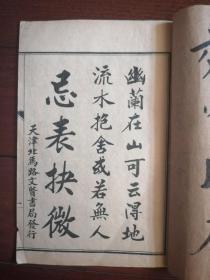 幽蘭在山可云得地
流水抱舍或若無人
忌表抉微
天津北馬路文賢書局發行